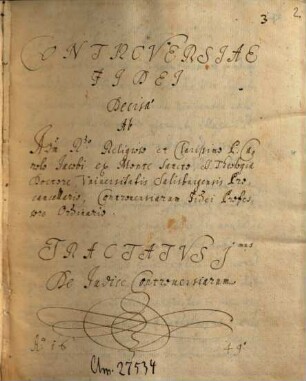 3 2.
CONTROVERSIAE
FIDEI
Decisae
Ab
Adm. Rdo Religioso et Clarissimo P. Ca-
rolo Jacobi ex Monte Sancto SS. Theologiae
Doctore Universitatis Salisburgensis Pro-
cancellario, Controversiarum Fidei Profes-
sore Ordinario.
TRACTATVS Imus
De Judice Controversiarum
Ao 16 49.
Clm. 27534